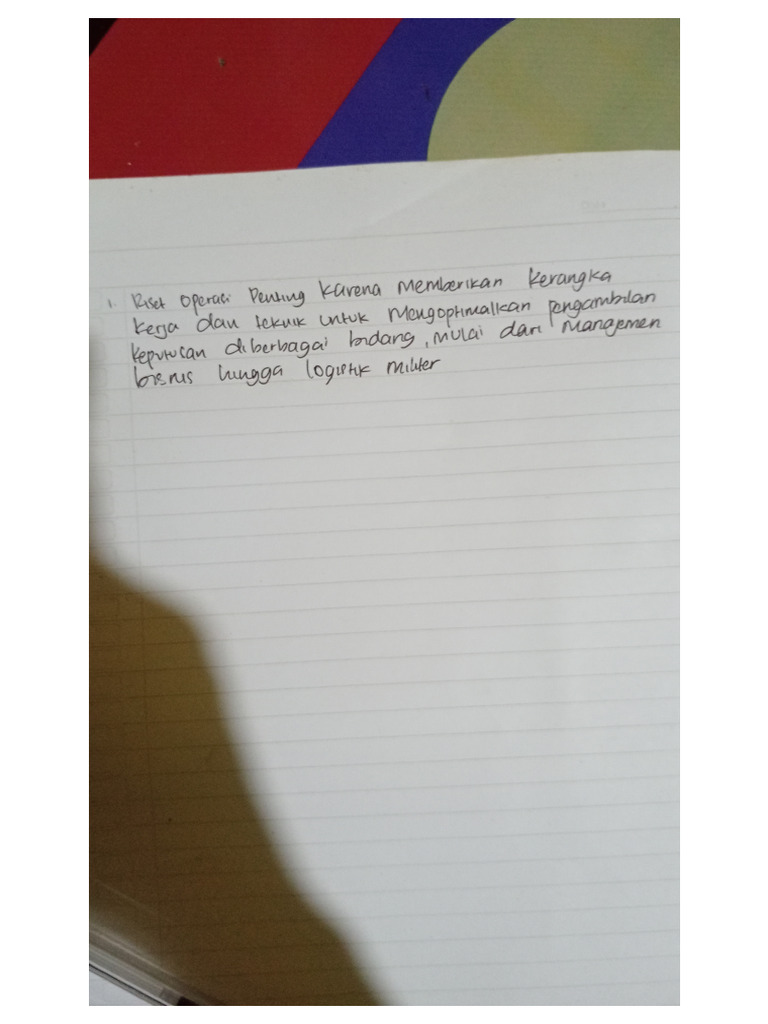 1. Riset operasi Penting karena memberikan kerangka
kerja dan teknik untuk mengoptimalkan pengambilan
keputusan diberbagai bidang, mulai dari manajemen
bisnis hingga logistik militer